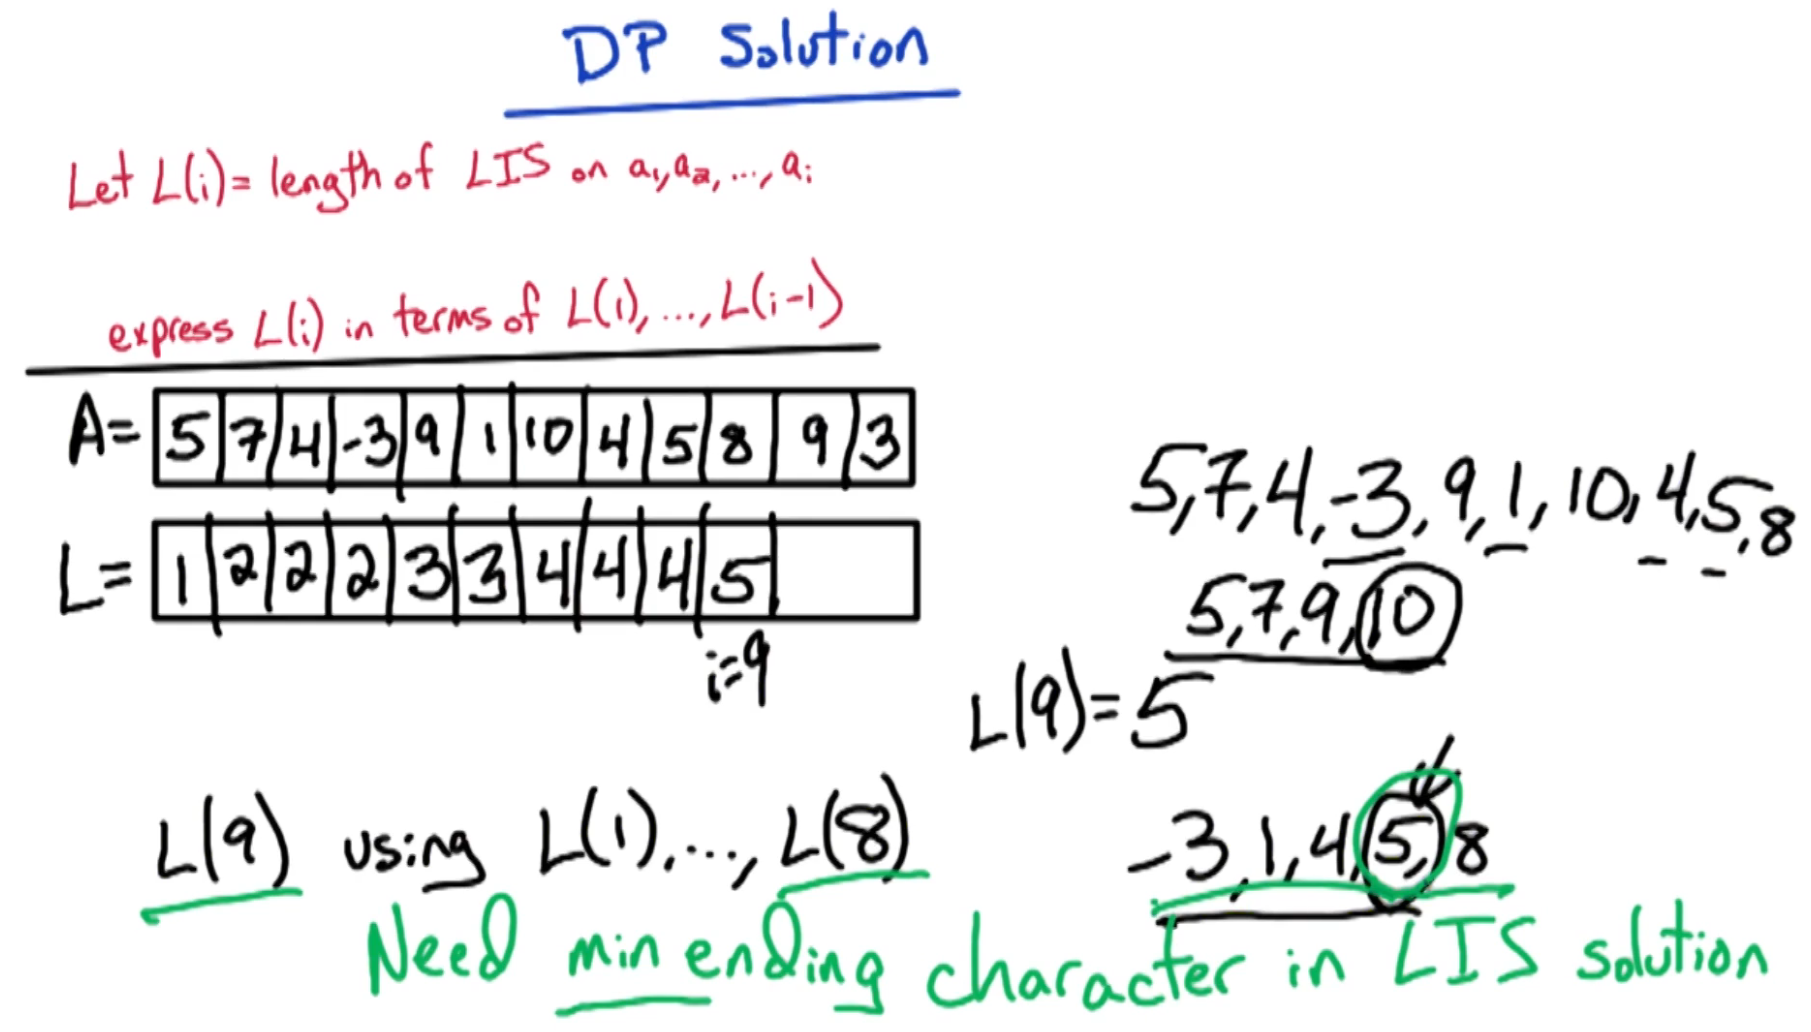 DP Solution
Let L(i) = length of LIS on a₁, a₂, ..., aᵢ
express L(i) in terms of L(1), ..., L(i-1)
A = 5 7 4 -3 9 1 10 4 5 8 9 3
L = 1 2 2 2 3 3 4 4 4 5
i=9
5, 7, 4, -3, 9, 1, 10, 4, 5, 8
5, 7, 9, 10
L(9) = 5
L(9) using L(1), ..., L(8)
-3, 1, 4, 5, 8
Need min ending character in LIS solution